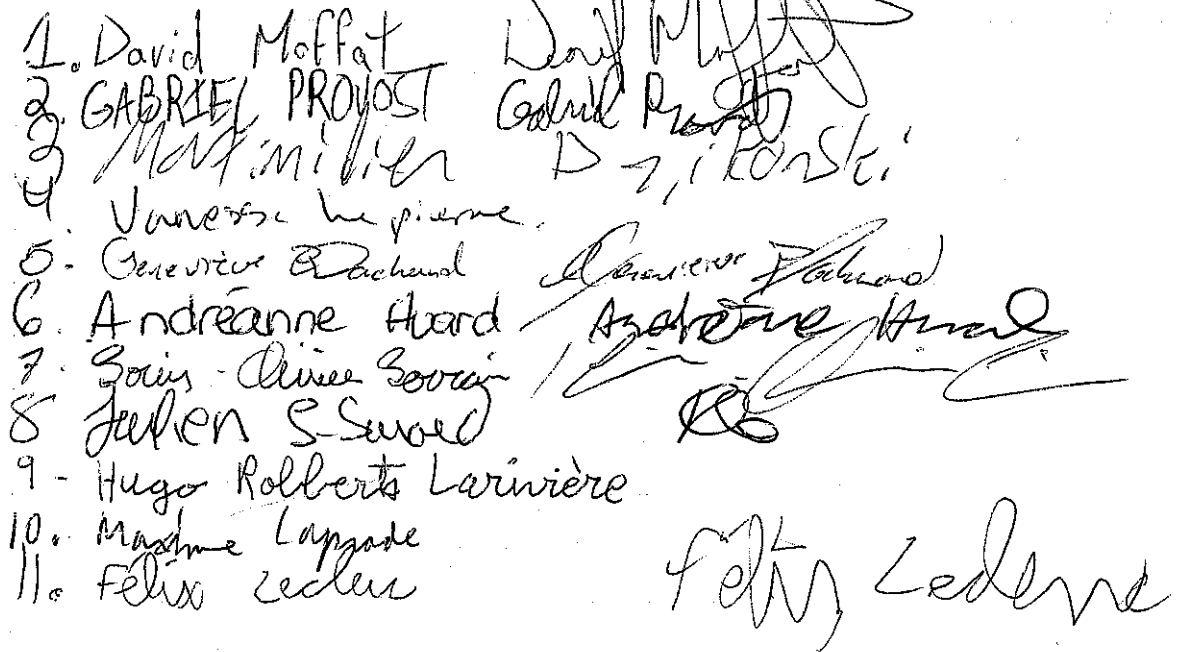 1. David Moffat David Moffat
2. GABRIEL PROVOST Gabriel Provost
3 Maximilien Dzikonski
4 Vanessa Lapierre
5. Geneviève Dachand
6. Andréanne Huard Andréanne Huard
7. Olivier
8 Julien
9- Hugo Rolberts Larivière
10. Maxime
11. Félix Leclerc Félix Leclerc